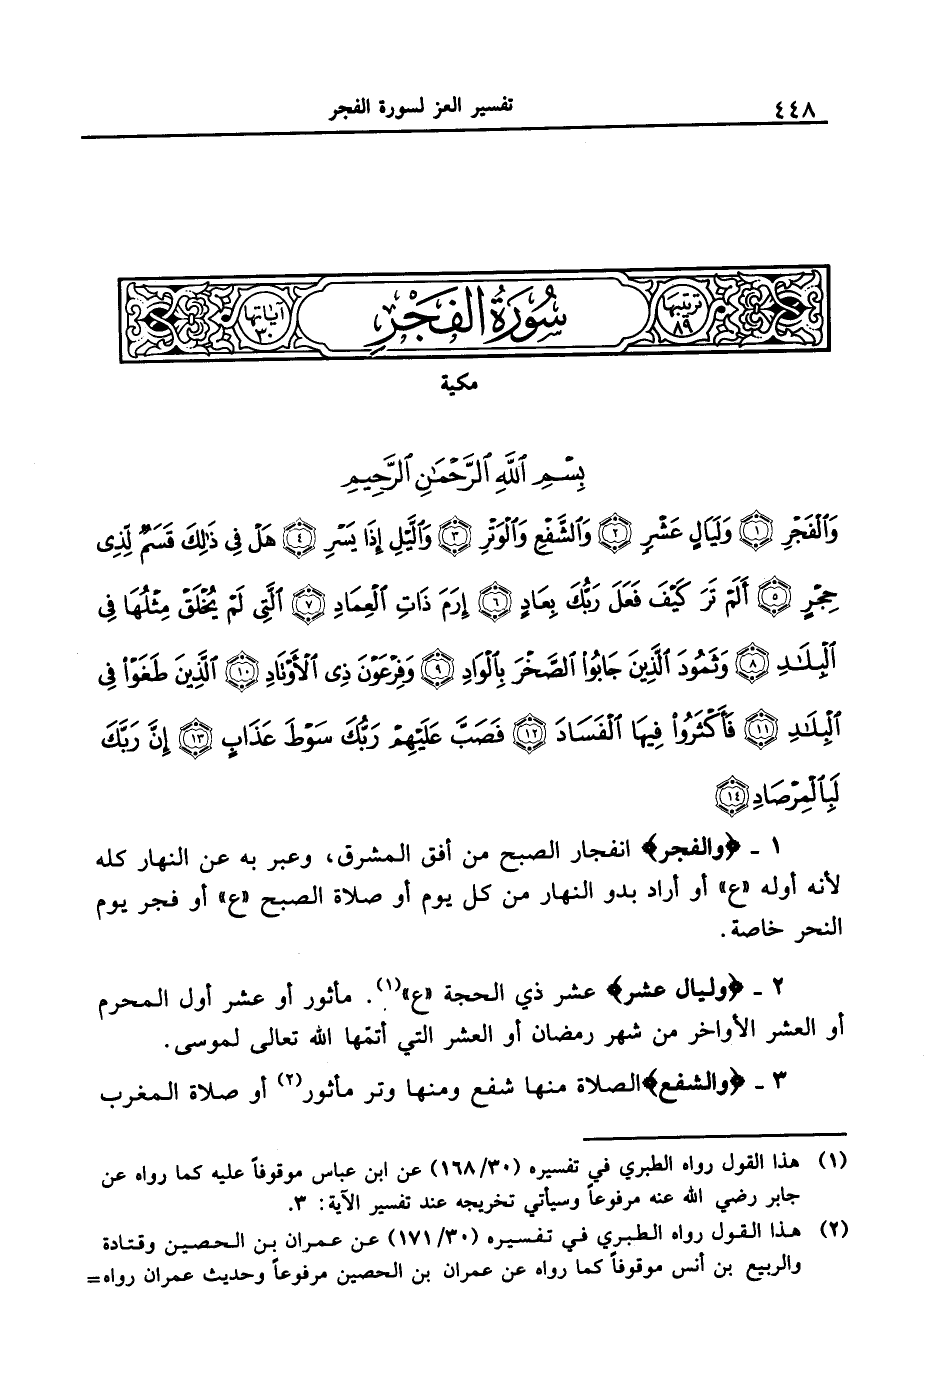 ٤٤٨
تفسير العز لسورة الفجر
ترتيبها ٨٩
سُورَةُ الفَجْرِ
آياتها ٣٠
مكية
بِسْمِ اللَّهِ الرَّحْمَٰنِ الرَّحِيمِ
وَالْفَجْرِ ١ وَلَيَالٍ عَشْرٍ ٢ وَالشَّفْعِ وَالْوَتْرِ ٣ وَالَّيْلِ إِذَا يَسْرِ ٤ هَلْ فِي ذَٰلِكَ قَسَمٌ لِّذِي
حِجْرٍ ٥ أَلَمْ تَرَ كَيْفَ فَعَلَ رَبُّكَ بِعَادٍ ٦ إِرَمَ ذَاتِ الْعِمَادِ ٧ الَّتِي لَمْ يُخْلَقْ مِثْلُهَا فِي
الْبِلَٰدِ ٨ وَثَمُودَ الَّذِينَ جَابُوا الصَّخْرَ بِالْوَادِ ٩ وَفِرْعَوْنَ ذِي الْأَوْتَادِ ١٠ الَّذِينَ طَغَوْا فِي
الْبِلَٰدِ ١١ فَأَكْثَرُوا فِيهَا الْفَسَادَ ١٢ فَصَبَّ عَلَيْهِمْ رَبُّكَ سَوْطَ عَذَابٍ ١٣ إِنَّ رَبَّكَ
لَبِالْمِرْصَادِ ١٤
١ ـ ﴿والفجر﴾ انفجار الصبح من أفق المشرق، وعبر به عن النهار كله
لأنه أوله «ع» أو أراد بدو النهار من كل يوم أو صلاة الصبح «ع» أو فجر يوم
النحر خاصة.
٢ ـ ﴿وليال عشر﴾ عشر ذي الحجة «ع»(١). مأثور أو عشر أول المحرم
أو العشر الأواخر من شهر رمضان أو العشر التي أتمّها الله تعالى لموسى.
٣ ـ ﴿والشفع﴾ الصلاة منها شفع ومنها وتر مأثور(٢) أو صلاة المغرب
(١) هذا القول رواه الطبري في تفسيره (١٦٨/٣٠) عن ابن عباس موقوفاً عليه كما رواه عن
جابر رضي الله عنه مرفوعاً وسيأتي تخريجه عند تفسير الآية: ٣.
(٢) هذا القول رواه الطبري في تفسيره (١٧١/٣٠) عن عمران بن الحصين وقتادة
والربيع بن أنس موقوفاً كما رواه عن عمران بن الحصين مرفوعاً وحديث عمران رواه=